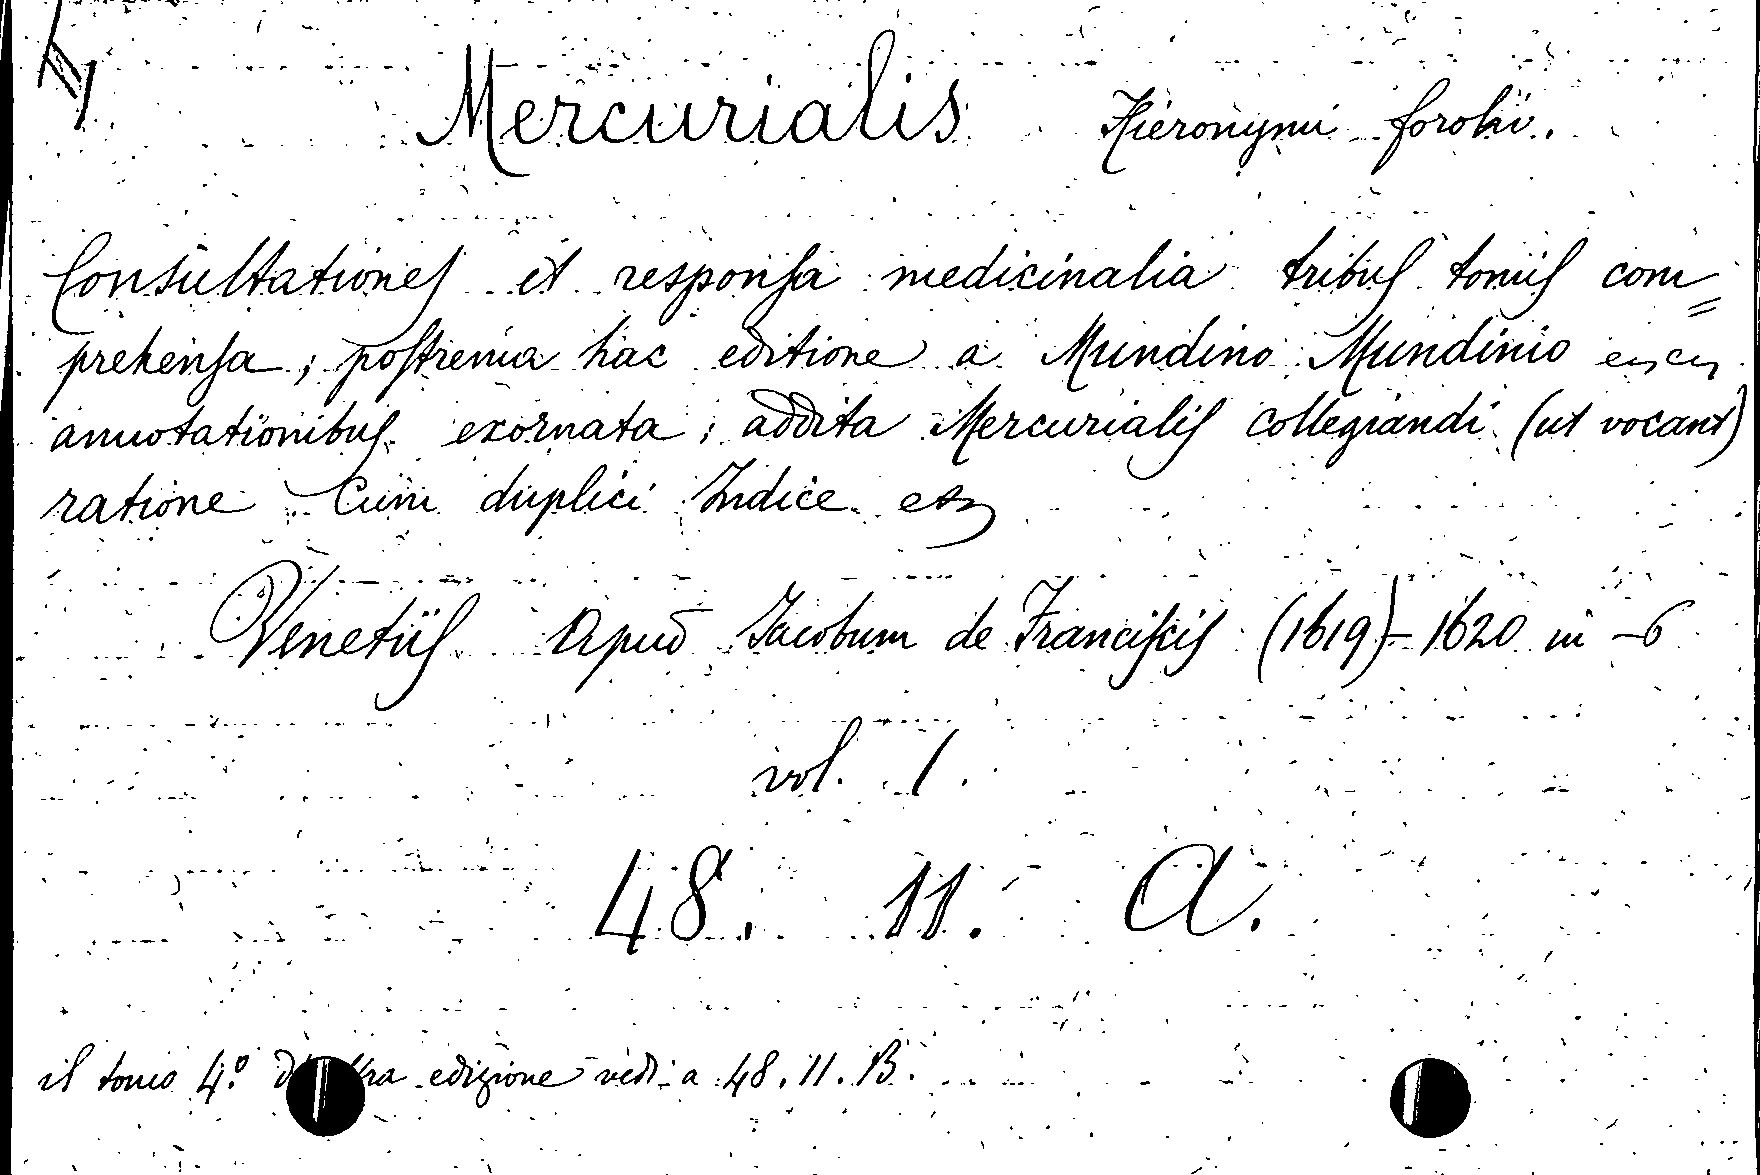 Mercurialis Hieronymi foroliv.
Consultationes et responsa medicinalia tribus tomis com=
prehensa; postrema hac editione a Mundino Mundinio
annotationibus exornata; addita Mercurialis collegiandi (ut vocant)
ratione Cum duplici Indice etc
Venetiis Apud Jacobum de Franciscis (1619)-1620 in -6
vol. 1.
48. 11. A.
il tomo 4º edizione vedi a 48.11.B.